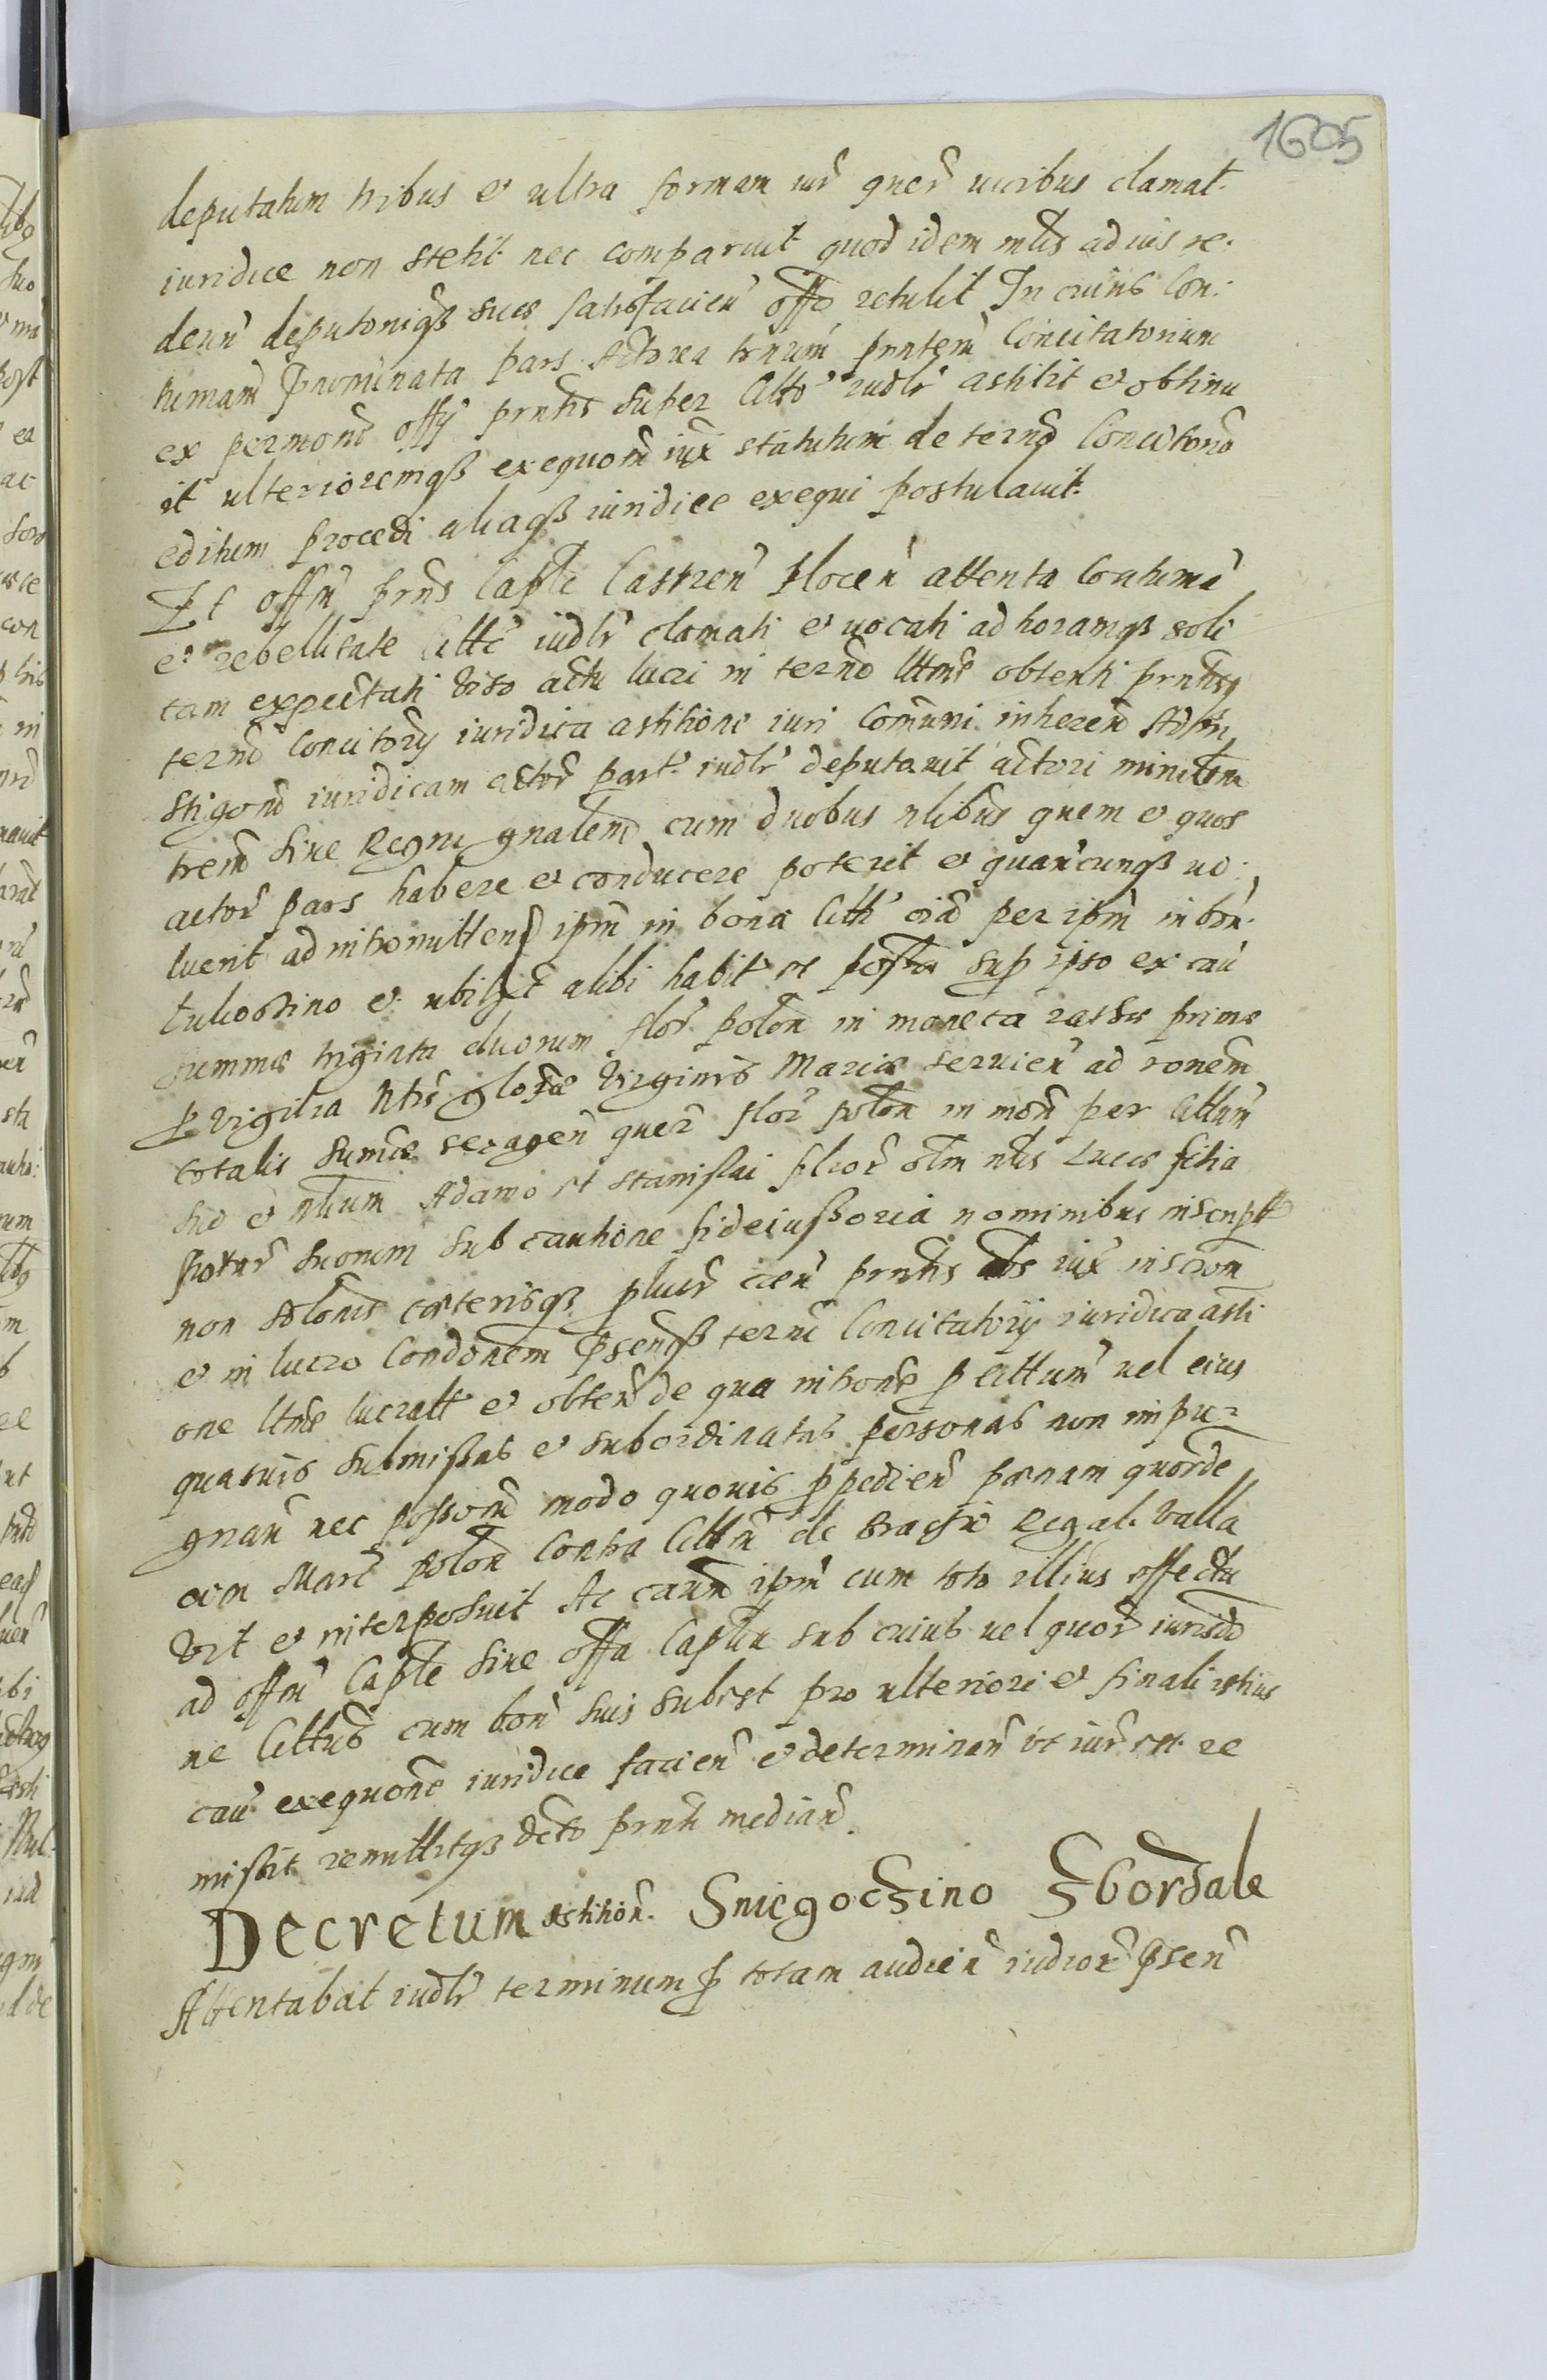 1605
deputatum tribus et ultra formam iur̃ gner̃ vicibus clamat.
iuridice non stetit nec comparuit quod idem mtis ad uis re:
deun̄ deputoniqꝫ suae satisfacien̄ offo retulit In cuius Con:
tumam̃ Pnominata pars Actorea trnum̃ pnntem̃ Concitatorium
ex permone offy pnntis super Citto iudlr̃ astitit et obtinu
it ulterioremqꝫ exequonem̃ iux̃ statutum de ternõ Concitono
editum procedi aliaqꝫ iuridice exequi postulauit.
Et offm̃ pnns Caple Castren̄ Plocen̄ attenta Contuma
et rebellitate Citti iudlr̃ clamati et vocati ad horamqꝫ soli
tam expectati viso actu lucri in ternõ lttone obtenti pnntisqꝫ
ternõ Concitory iuridica astitione iuri Comuni inheren̄ Adin
stigonẽ iuridicam actor̃ part. iudlr̃ deputauit actori minitm
trem̃ siue Regni gnalem̃ cum duobus nlibus quem et quos
actor̃ pars habere et conducere poterit et quan̄cunqꝫ uo:
luerit ad intromitten̄ ipm̃ in bona Citti oia per ipm̃ in bon̄.
et ubilt alibi habit et possa sup ipso ex cau
summae triginta duorum flor̃ polon̄ in moneta ratae primae
P vigilia Ntis glosae Virginis Mariae seruien̄ ad ronem
totalis sumae sexagen̄ quer̃ flor̃ polon̄ in mon̄ per Cittum̃
suo et nlium Adamo et Stanislai filior̃ olim nlis Lucae filia
stotr̃ suorum sub cautione fideiussoria nominibus inscript
non solonis caeterisqꝫ plur̃ caen̄ pnntis iux̃ inscron̄
et in lucro Condonem Psenqꝫ terni Concitatorij iuridica asti
one lttone lucratt et obten̄ de qua introne P Cittum̃ uel eius
quasuis submissas et subordinatas personas non impu
gnan̄ nec possonẽ modo quouis ppedien̄ paenam quorde
cim Mar̃ polon̄ Contra Cittm̃ de Regal. valla
vit et interposuit Ac caum̃ ipm̃ cum toto illius effectu
ad offm̃ Caple siue offa Capla sub cuius uel quor̃ iurisdo
ne Cittus cum bon̄ suis subest pro ulteriori et finali istius
cau exequone iuridice facien̄ et determinan̄ vt iur̃ est re
missit remittitqꝫ dcto pnnti median̄.
Decretum astition̄. Sniegoczino Zbordale
Attentabat iudlr̃ terminum P totam audien̄ iudior̃ Psen̄